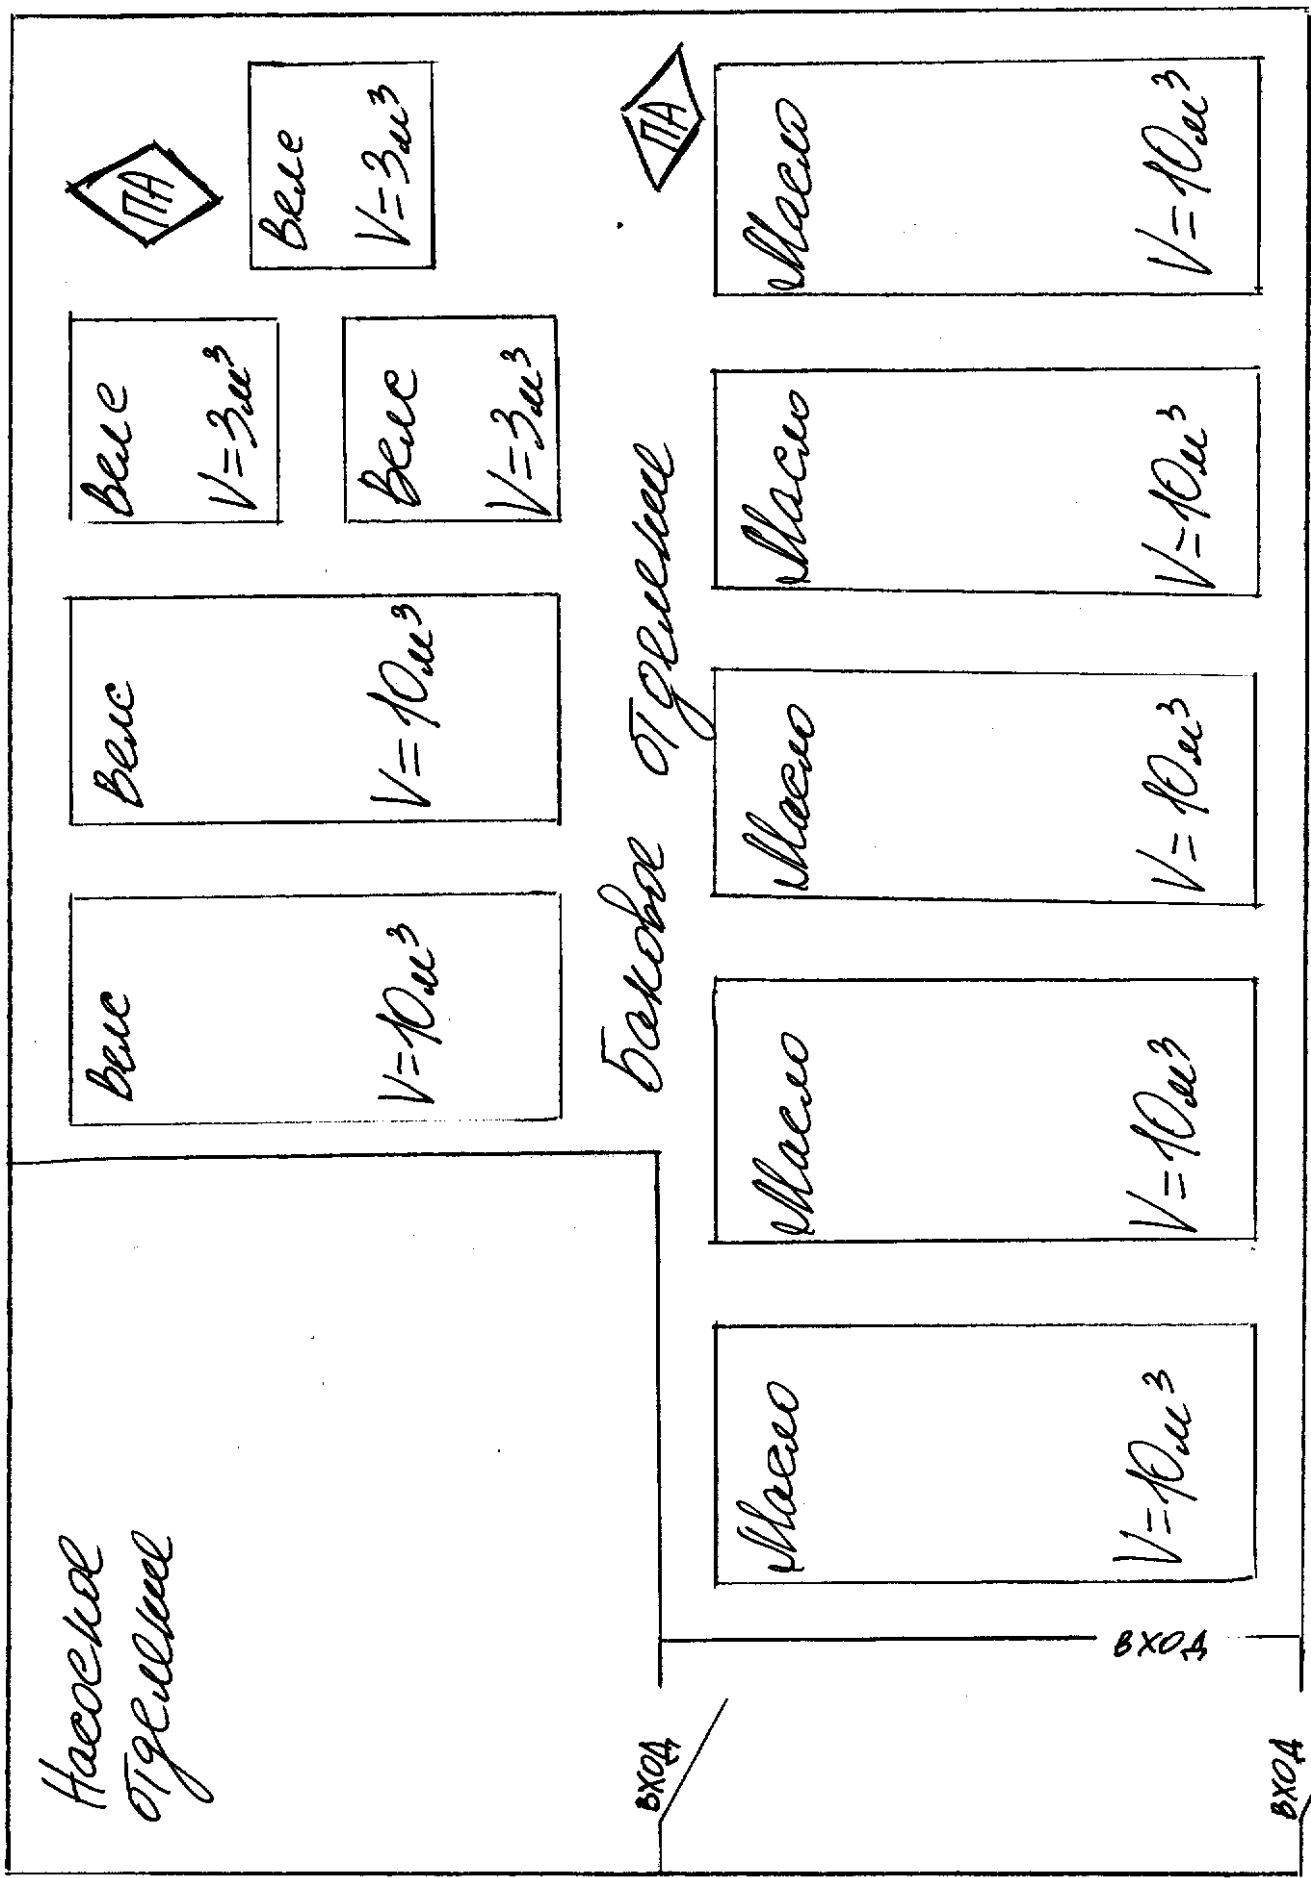 Насосное
отделение
Велс
V=10м³
Велс
V=10м³
Велс
V=3м³
Велс
V=3м³
ПА
Велс
V=3м³
Баковое отделение
ПА
Масло
V=10м³
Масло
V=10м³
Масло
V=10м³
Масло
V=10м³
Масло
V=10м³
вход
вход
вход